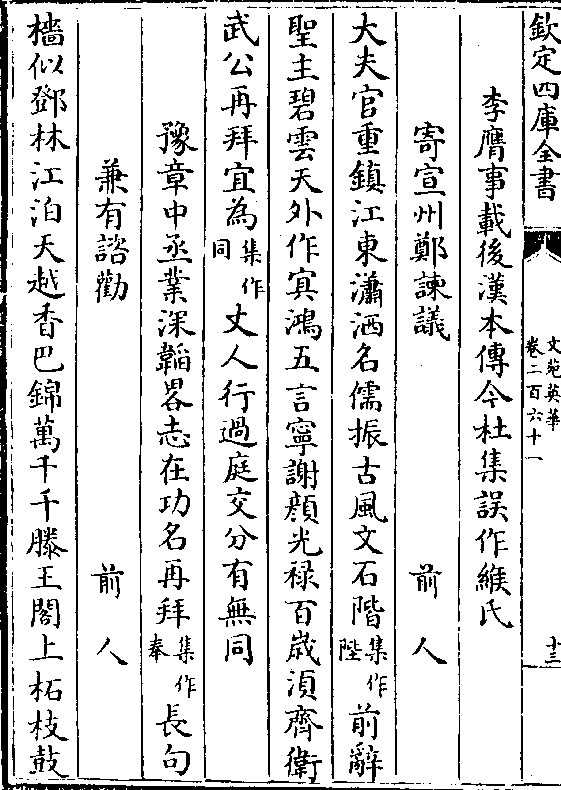 欽定四庫全書
文苑英華
卷二百六十一
十三
李膺事載後漢本傳今杜集誤作緱氏
寄宣州鄭諫議　前人
大夫官重鎮江東瀟洒名儒振古風文石階集作陛前辭
聖主碧雲天外作冥鴻五言寧謝顔光禄百歲湏齊衛
武公再拜宜為集作同丈人行過庭交分有無同
豫章中丞業深韜畧志在功名再拜集作奉長句
兼有諮勸　前人
檣似鄧林江泊天越香巴錦萬千千滕王閣上柘枝鼓